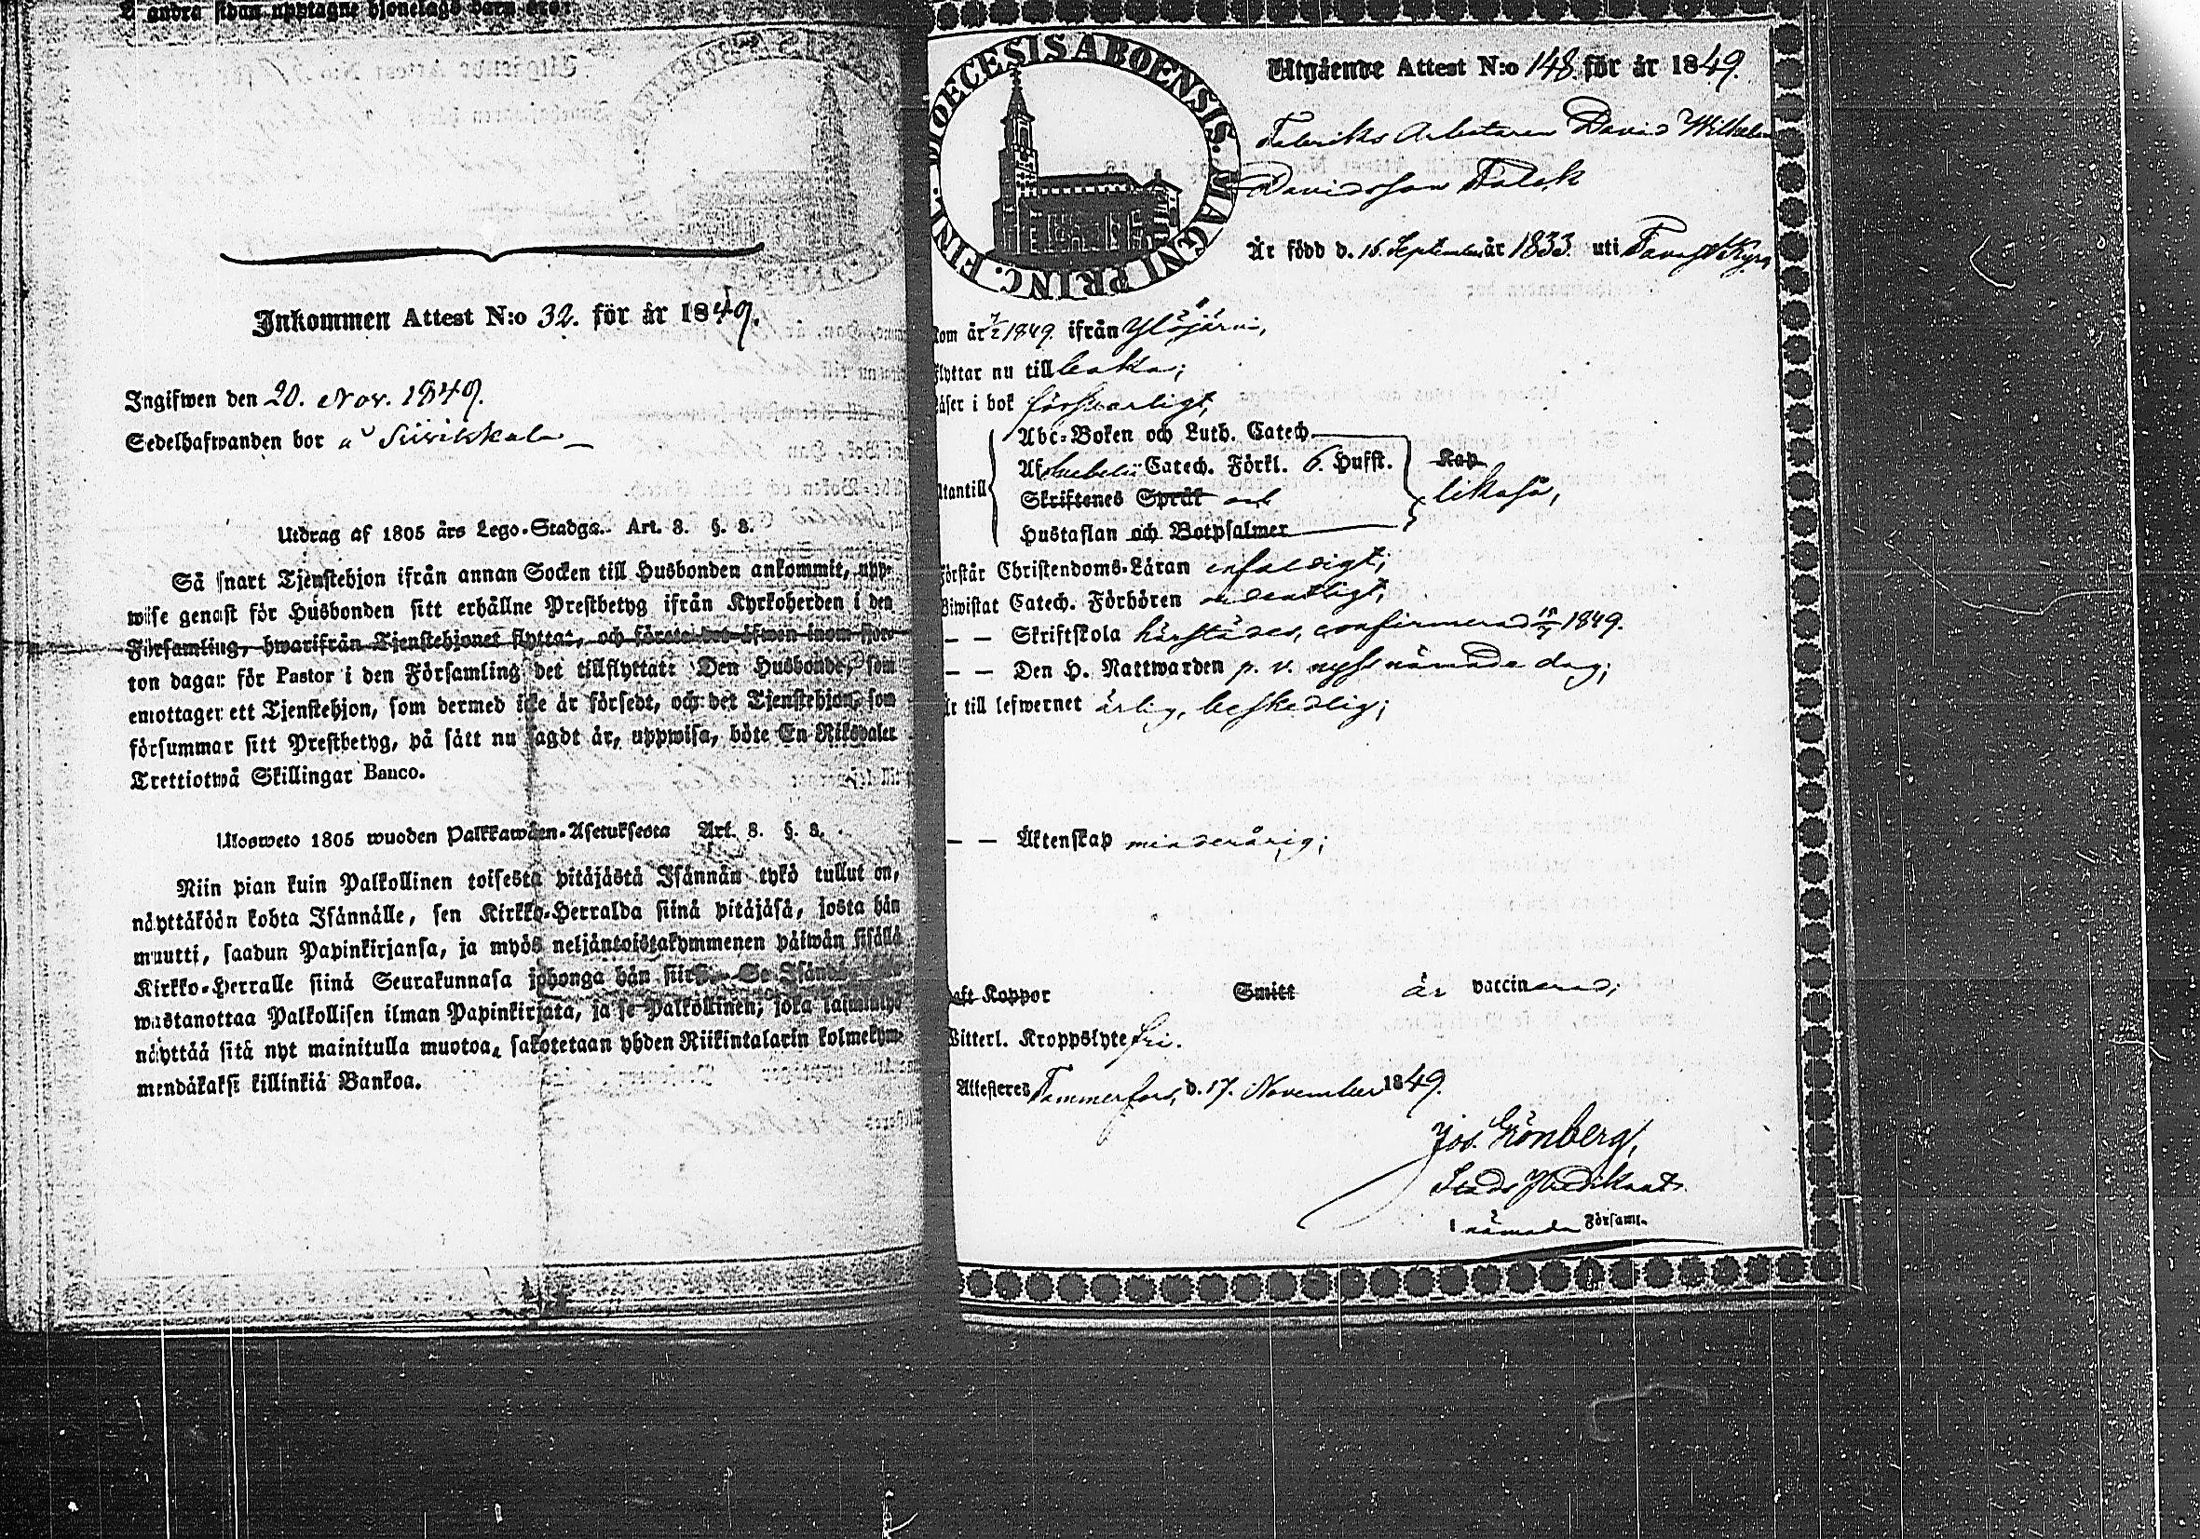 å andra sidan upptagne hjonelags barn äro:
Inkommen Attest N:o 32. för år 1849.
Ingifwen den 20. Nov. 1849.
Sedelhafwanden bor å Siivikkala
Utdrag af 1805 års Lego-Stadga. Art. 8. §. 8.
Så snart Tjenstehjon ifrån annan Socken till Husbonden ankommit, upp-
wise genast för Husbonden sitt erhållne Prestbetyg ifrån Kyrkoherden i den
Församling, hwarifrån Tjenstehjonet flyttat, och förete det äfwen inom fjor-
ton dagar för Pastor i den Församling det tillflyttat: Den Husbonde, som
emottager ett Tjenstehjon, som dermed icke är försedt, och det Tjenstehjon, som
försummar sitt Prestbetyg, på sätt nu sagdt är, uppwisa, böte En Riksdaler
Trettiotwå Skillingar Banco.
Ulosweto 1805 wuoden Palkkawäen-Asetuksesta Art. 8. §. 8.
Niin pian kuin Palkollinen toisesta pitäjästä Isännän tykö tullut on,
näyttäköön kohta Isännälle, sen Kirkko-Herralda siinä pitäjäsä, josta hän
muutti, saadun Papinkirjansa, ja myös neljäntoistakymmenen päiwän sisällä
Kirkko-Herralle siinä Seurakunnasa johonga hän siirsi. Se Isändä
wastanottaa Palkollisen ilman Papinkirjata, ja se Palkollinen, joka laiminlyö
näyttää sitä nyt mainitulla muotoa, sakotetaan yhden Riikintalarin kolmekym-
mendäkaksi killinkiä Bankoa.
DIOECESIS ABOENSIS. MAGNI PRINC. FINL.
Utgående Attest N:o 148 för år 1849.
Fabriks Arbetaren David Wilhelm
Davidsson Falck
Är född d. 16. September år 1833. uti Tavastkyro
kom år 7/2 1849. ifrån Ylöjärvi,
flyttar nu till baka;
läser i bok försvarligt,
Abc-Boken och Luth. Catech.
Af Svebelii Catech. Förkl. 6. Hufst. Kap
Utantill Skriftenes Språk och likaså,
Hustaflan och Botpsalmer
Förstår Christendoms-Läran enfaldigt;
Biwistat Catech. Förhören ordentligt,
— — Skriftskola härstädes, confirmerad 15/7 1849.
— — Den H. Nattwarden p. v. nyss nämnde dag;
Är till lefwernet ärlig, beskedlig;
— — Äktenskap minderårig;
haft Koppor Smitt är vaccinerad;
Witterl. Kroppslyte fri.
Attesteres Tammerfors, d. 17. November 1849.
Jos. Grönberg,
Stads Predikant
i nämnde Församl.